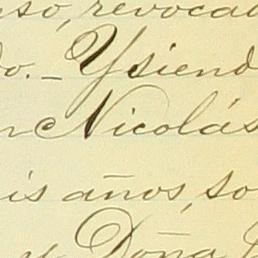 uso, revocad
do. – Y siend
n Nicolás
is años, so
y Doña